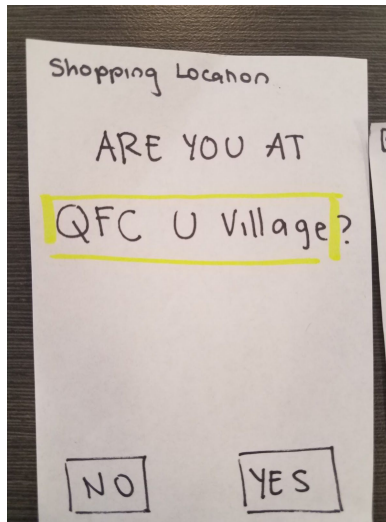 Shopping Location
ARE YOU AT
QFC U Village?
NO YES